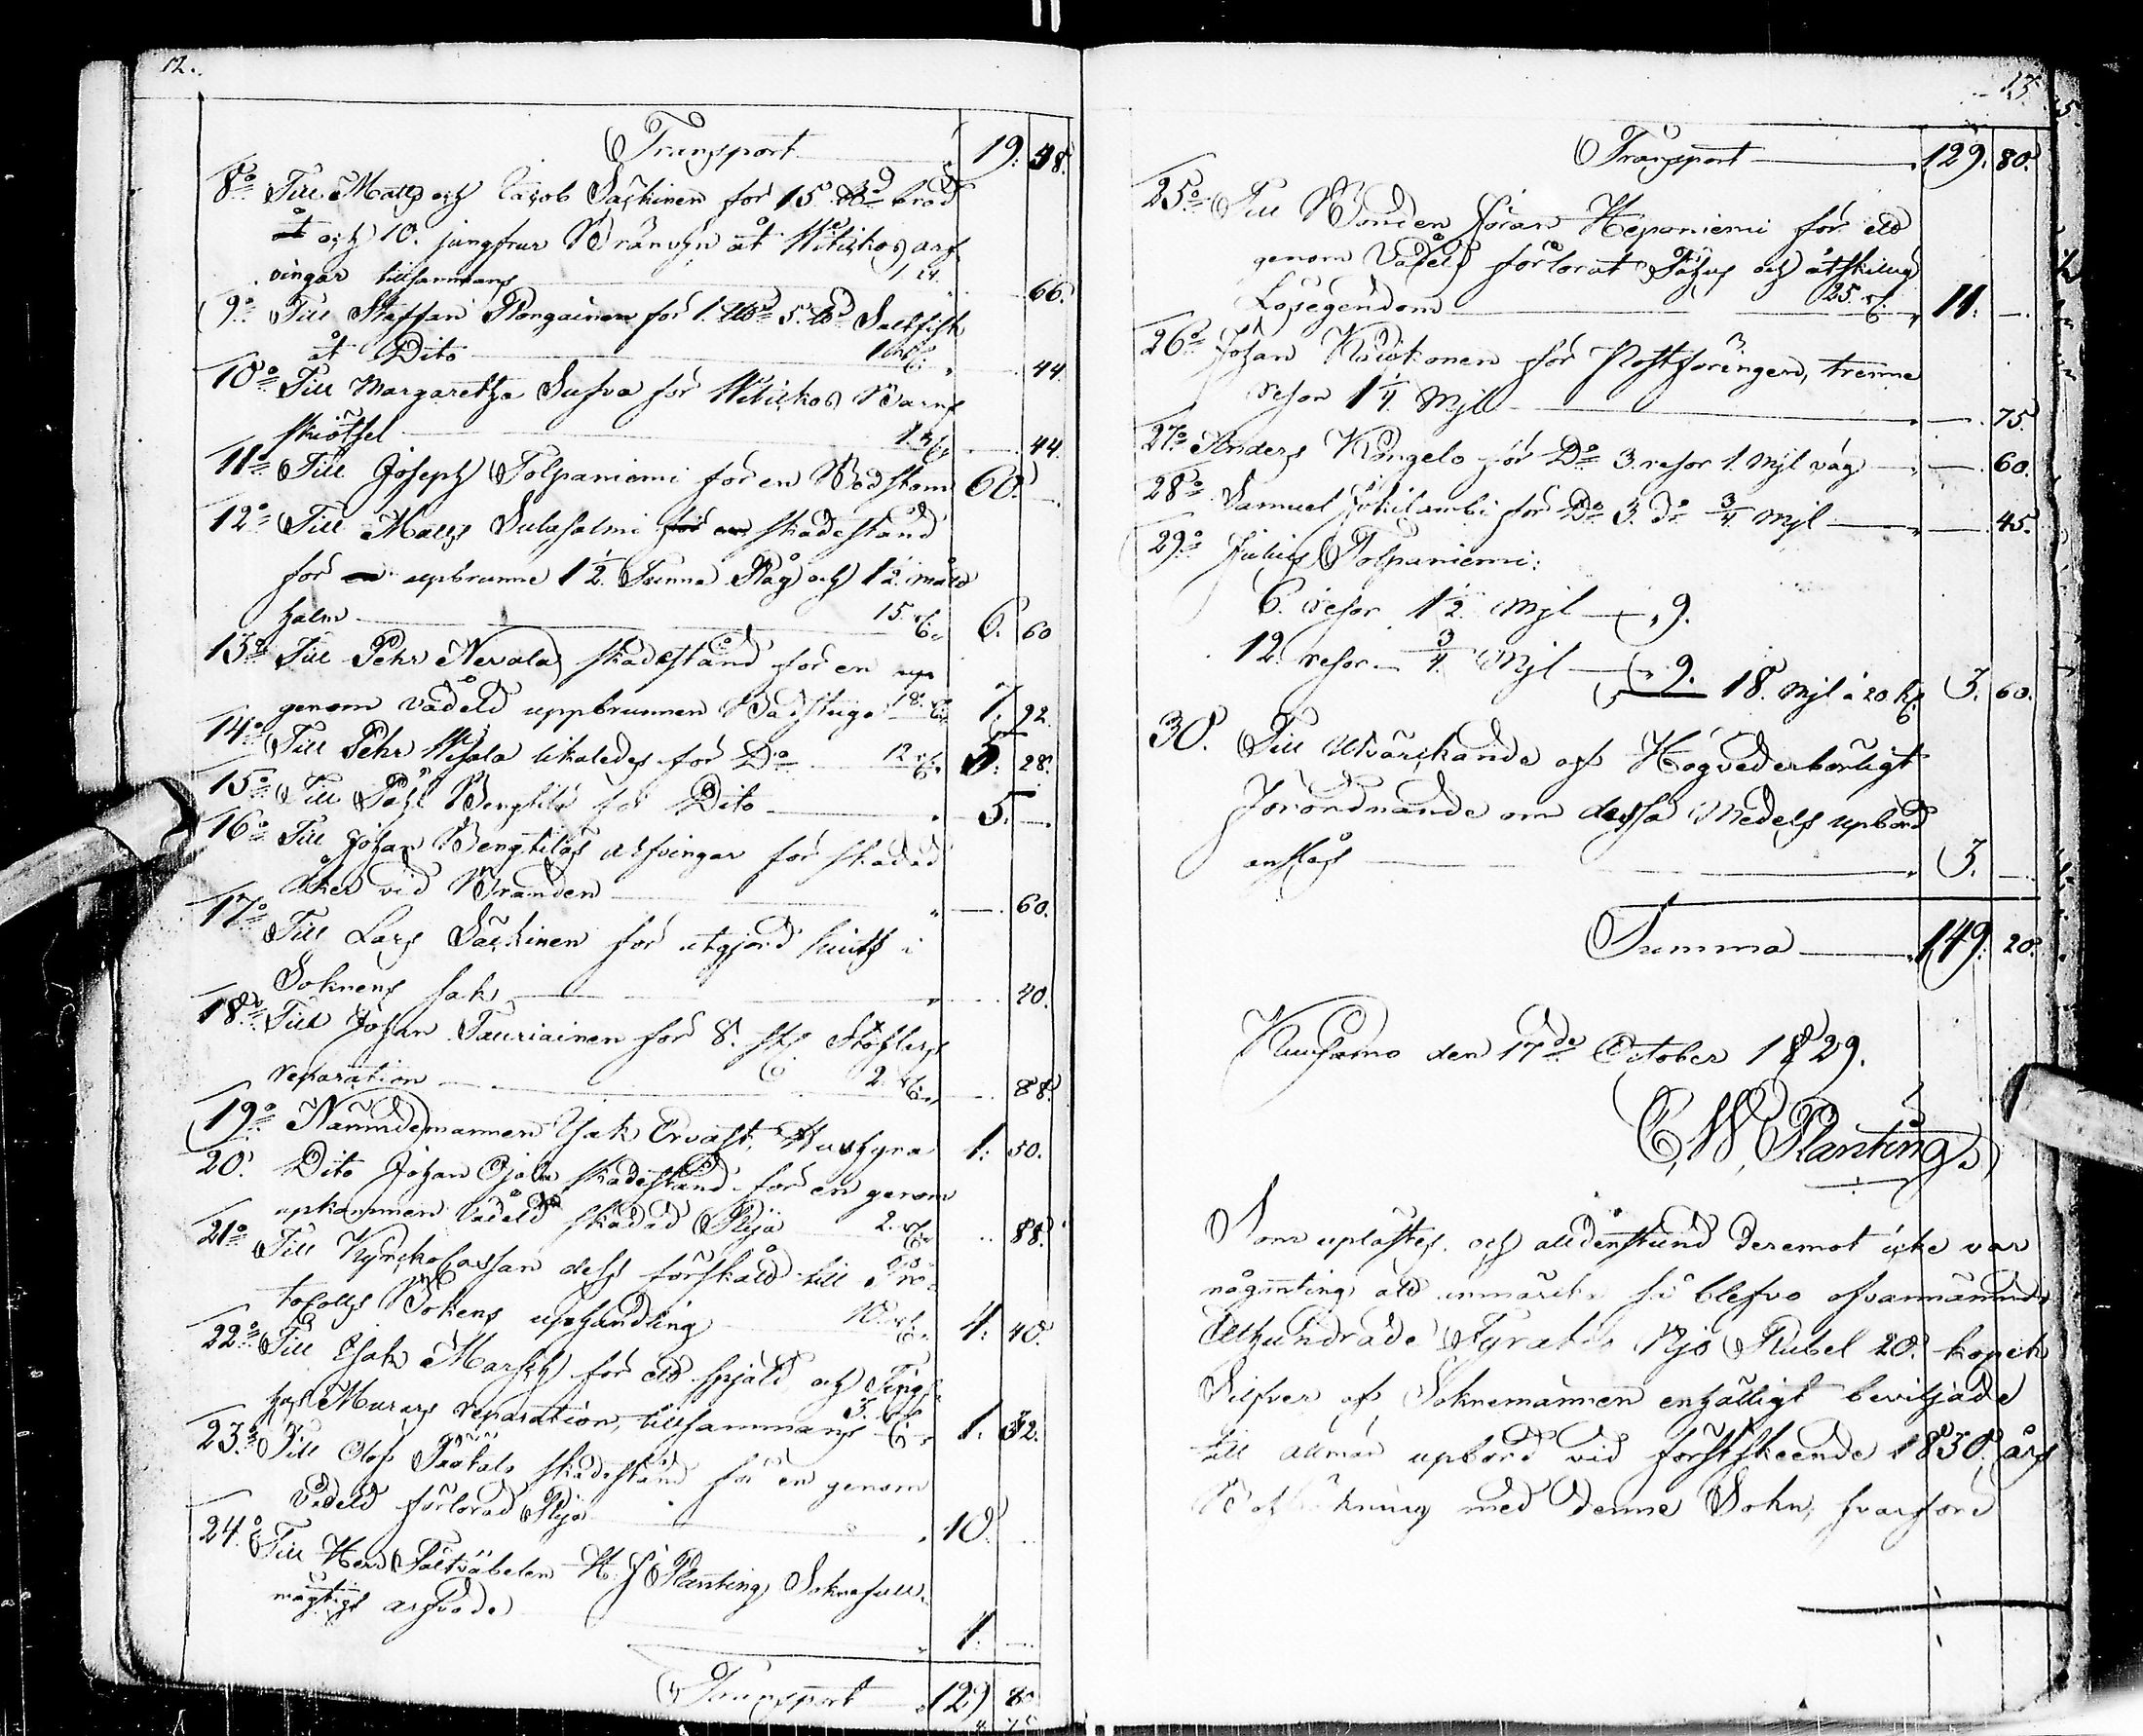 12.
Transport 19. 48.
8o Till Matts och Jacob Säckinen för 15 bröd
och 10. jungfrur Bränvin åt arf
vingar tillsammans 66.
9o Till Staffan Rongainen för 1. 5. Saltfisk
åt Dito 44.
10o Till Margaretha Sufva för Barns
skiötsel 44.
11o Till Joseph Tolpaniemi för en 60. —
12o Till Matts Sulasalmi för en skadestånd
för en upbrunne 1½ Tunna Råg och 12.
halm 15. 6. 60
13o Till Pehr Nevala skadestånd för en up
genom vådeld uppbrunnen Badstuga 18. 7. 92.
14o Till Pehr likaledes för Do 12 5. 28.
15o Till Påhl Bengtilä för Dito 5. —
16o Till Johan Bengtiläs arfvingar för skadad
åker vid Branden — 60.
17o Till Lars Säckinen för utgjord i
Soknens sak 40.
18o Till Johan Tauriainen för 8.
reparation 2. 88.
19o Nämndemannen Isak Ervast, Hushyra 1. 50.
20. Dito Johan Ojala skadestånd för en genom
upkommen vådeld skadad Rija 2. 88.
21o Till Kyrckocassan dess förskåld till Pro-
tocolls Bokens uphandling 10. 4. 40.
22o Till Isak för eld spjäld och Tings
hus Murars reparation, tillsammans 3. 1. 32.
23. Till Olof skadestånd för en genom
Vådeld förlorad Rija 10. —
24o Till Herr Fältväbelen H. J. Planting Soknefull-
mägtigs arfvode 1. —
Transport 129 80
13.
Transport 129. 80.
25o Till Bonden Jöran Heponiemi för eld
genom Vådeld förlorat och åtskillig
Lösegendom 25. 11. —
26o Johan för Postföringen, trenne
resor 1¼ Mijl — 75.
27o Anders Kångelo för Do 3. resor 1. Mijl väg — 60.
28o Samuel Jokilambi för Do 3. do ¾ Mijl — 45.
29o Julius Tolpaniemi:
6. resor 1½ Mijl — 9.
12. resor — ¾ Mijl — 9. 18. Mijl à 20 k. 3. 60.
30. Till Utvärckande af Högvederbörligt
Förordnande om dessa Medels upbörd
anslås 3. —
Summa 149. 20.
Kuusamo den 17de October 1829.
C. W. Planting
Som uplästes, och alldenstund deremot icke var
någonting att anmärka så blefvo ofvannämnde
Etthundrade Fyratio Njo Rubel 20. kopek
Silfver af Soknemännen enhälligt beviljade
till allmän upbörd vid förstskeende 1830. års
med denne Sokn, hvarföre